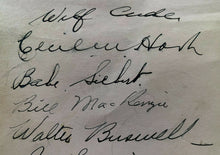 Wilf Cude
Cecil M Hart
Babe Siebert
Bill MacKenzie
Walter Buswell